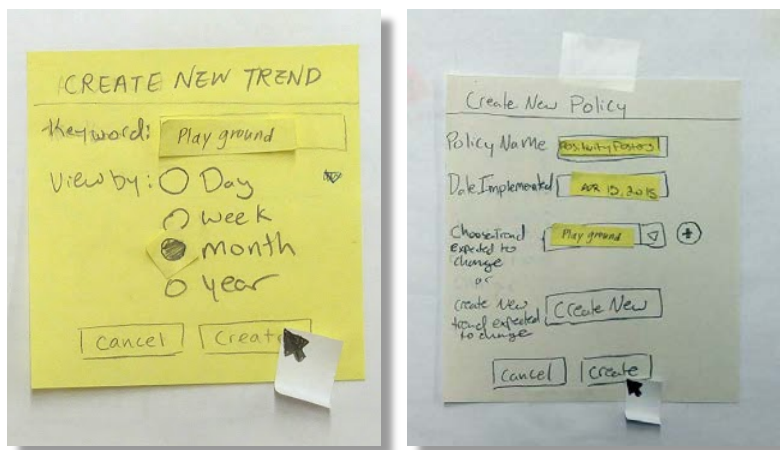 CREATE NEW TREND
Keyword: Play ground
View by: Day
week
month
year
Cancel Create
Create New Policy
Policy Name Positivity Posters
Date Implemented APR 13, 2015
Choose Trend Play ground
Expected to
change
or
create New Create New
trend expected
to change
Cancel Create